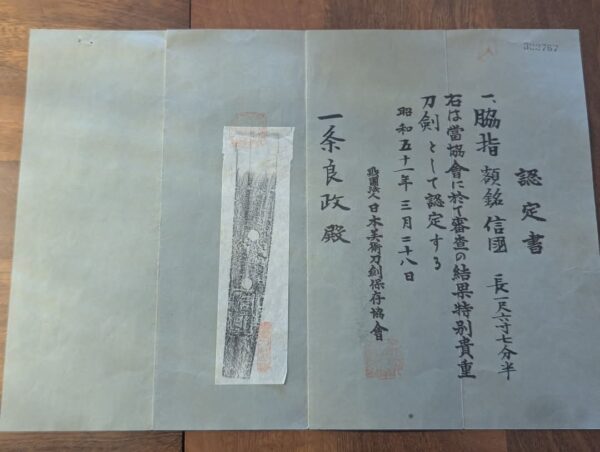 322767
認定書
一、脇指 額銘 信國 長一尺六寸七分半
右は當協會に於て審査の結果特別貴重
刀剣として認定する
昭和五十一年三月二十八日
財團法人日本美術刀剣保存協會
一条良政殿